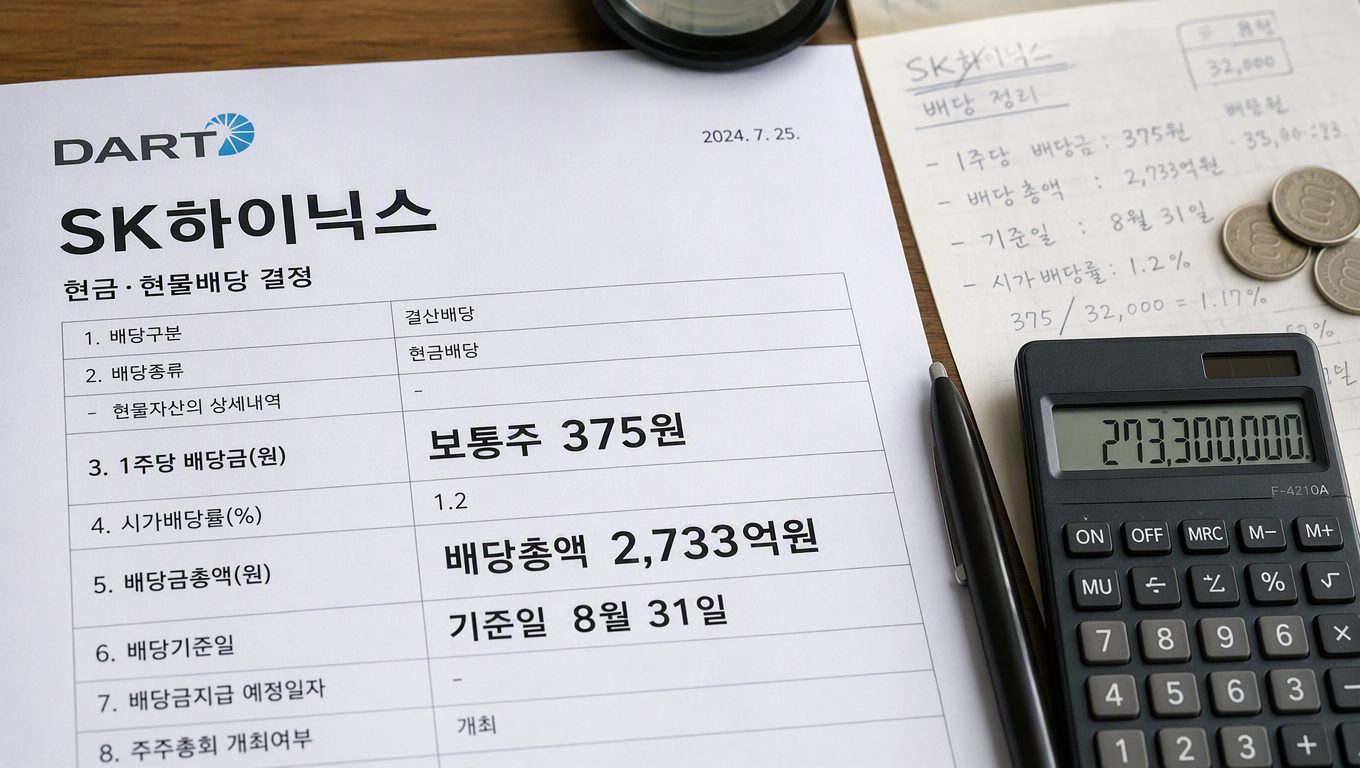 DART
2024. 7. 25.
SK하이닉스
현금·현물배당 결정
1. 배당구분 결산배당
2. 배당종류 현금배당
- 현물자산의 상세내역 -
3. 1주당 배당금(원) 보통주 375원
4. 시가배당률(%) 1.2
5. 배당금총액(원) 배당총액 2,733억원
6. 배당기준일 기준일 8월 31일
7. 배당금지급 예정일자 -
8. 주주총회 개최여부 개최
SK하이닉스
배당 정리
32,000
- 1주당 배당금 : 375원
- 배당총액 : 2,733억원
- 기준일 : 8월 31일
- 시가배당률 : 1.2%
375 / 32,000 = 1.17%
273,300,000.
F-4210A
ON OFF MRC M− M+
MU % √
7 8 9 6 ×
4 5 6 3 −
1 2 3 +